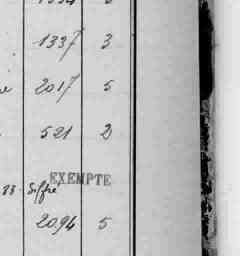 1337 3
2017 5
521 2
EXEMPTE
23 Siffre
2094 5